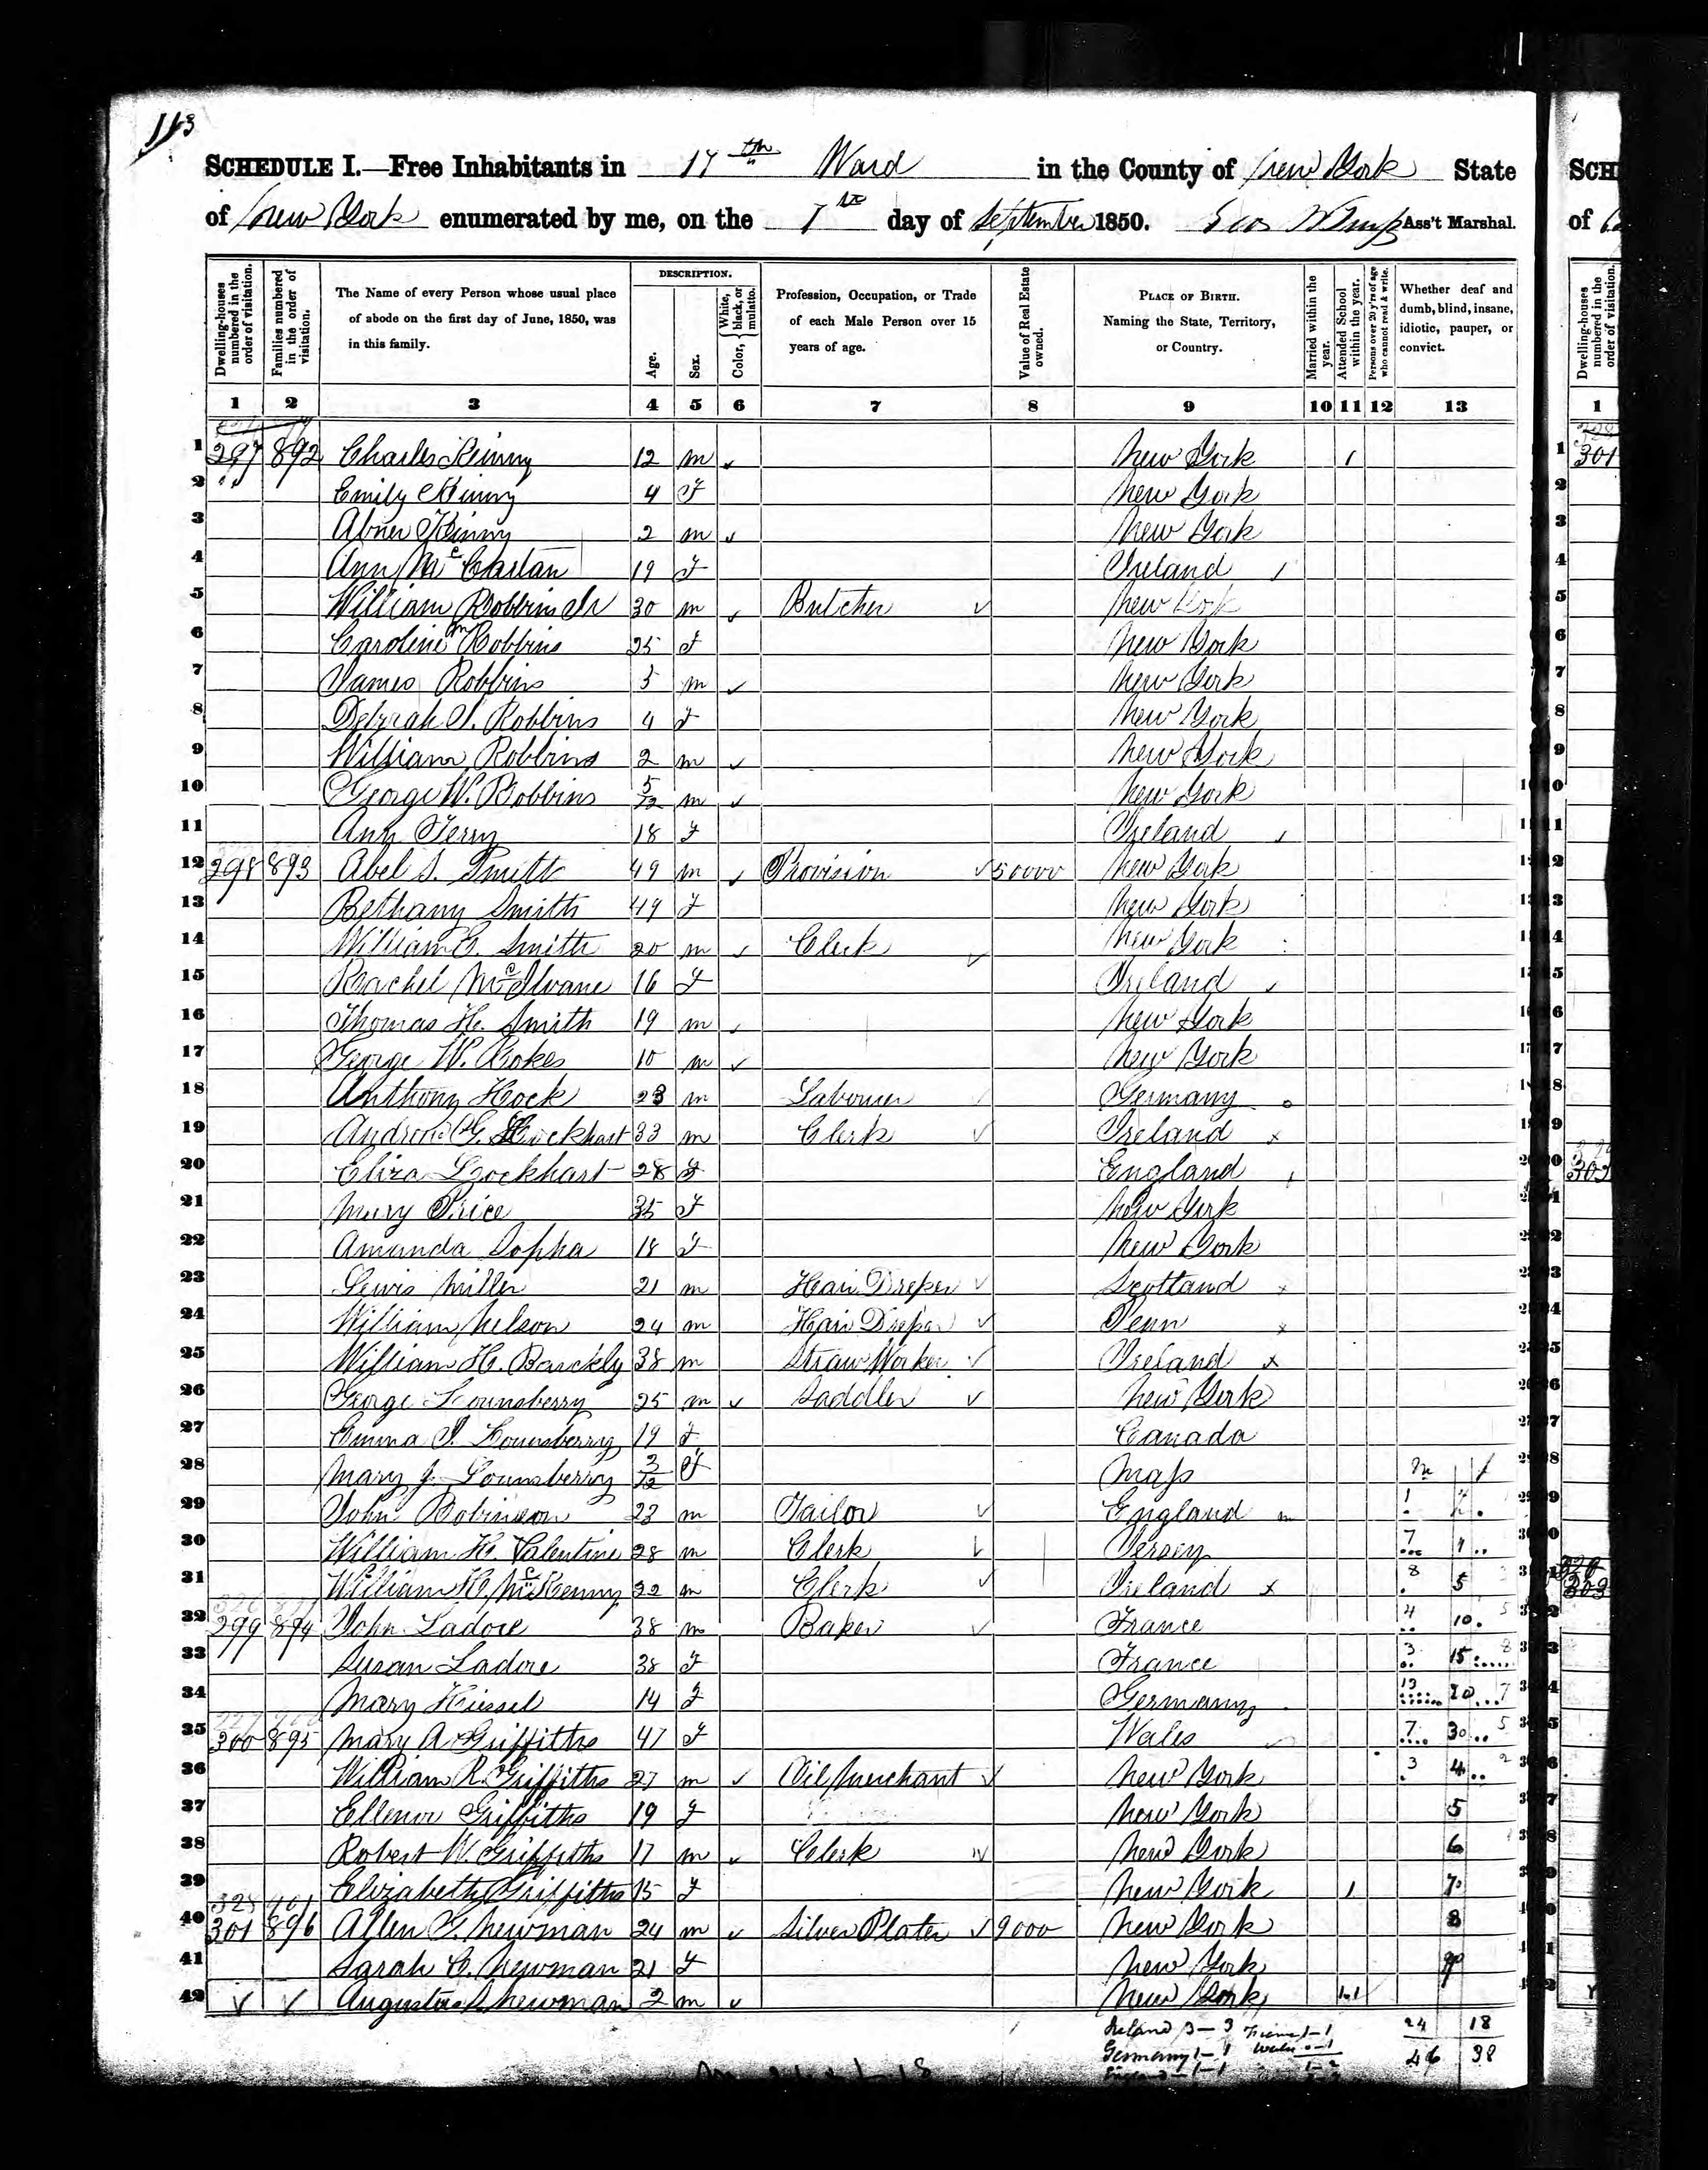 113
SCHEDULE I.—Free Inhabitants in 17th Ward in the County of New York State
of New York enumerated by me, on the 7th day of September 1850. Ass't Marshal.
Dwelling-houses numbered in the order of visitation.
Families numbered in the order of visitation.
The Name of every Person whose usual place of abode on the first day of June, 1850, was in this family.
DESCRIPTION.
Age.
Sex.
Color, White, black, or mulatto.
Profession, Occupation, or Trade of each Male Person over 15 years of age.
Value of Real Estate owned.
PLACE OF BIRTH. Naming the State, Territory, or Country.
Married within the year.
Attended School within the year.
Persons over 20 y'rs of age who cannot read & write.
Whether deaf and dumb, blind, insane, idiotic, pauper, or convict.
1 2 3 4 5 6 7 8 9 10 11 12 13
1 297 892 Charles Kinny 12 m New York 1
2 " Emily Kinny 4 F New York
3 Abner Kinny 2 m New York
4 Ann Mc Caslan 19 F Ireland
5 William Robbins Jr 30 m Butcher New York
6 Caroline M Robbins 25 F New York
7 James Robbins 5 m New York
8 Deborah S. Robbins 4 F New York
9 William Robbins 2 m New York
10 George W. Robbins 5/12 m New York
11 Ann Terry 18 F Ireland
12 298 893 Abel S. Smith 49 m Provision 50000 New York
13 Bethany Smith 49 F New York
14 William E. Smith 20 m Clerk New York
15 Rachel McIlvane 16 F Ireland
16 Thomas H. Smith 19 m New York
17 George W. Rokes 10 m New York
18 Anthony Hock 23 m Labourer Germany
19 Andrew G. Lockhart 33 m Clerk Ireland
20 Eliza Lockhart 28 F England
21 Mary Price 35 F New York
22 Amanda Sopha 18 F New York
23 Lewis Miller 21 m Hair Dreser Scotland
24 William Nelson 24 m Hair Dreser Penn
25 William H. Barckly 38 m Straw Worker Ireland
26 George Lounsberry 25 m Saddler New York
27 Emma J. Lounsberry 19 F Canada
28 Mary J. Lounsberry 3/12 F Mass
29 John Robinson 23 m Tailor England
30 William H. Valentine 28 m Clerk Jersey
31 William H. McKenny 32 m Clerk Ireland
32 299 894 John Ladore 38 m Baker France
33 Susan Ladore 38 F France
34 Mary Hissel 14 F Germany
35 300 895 Mary A Griffiths 47 F Wales
36 William R. Griffiths 27 m Oil Merchant New York
37 Ellenor Griffiths 19 F New York
38 Robert W. Griffiths 17 m Clerk New York
39 Elizabeth Griffiths 15 F New York 1
40 301 896 Allen G. Newman 24 m Silver Plater 9000 New York
41 Sarah C. Newman 21 F New York
42 Augustus Newman 2 m New York
Ireland 3-3 24 18
Germany 1-1 46 38
SCH
of
Dwelling-houses numbered in the order of visitation.
1
301